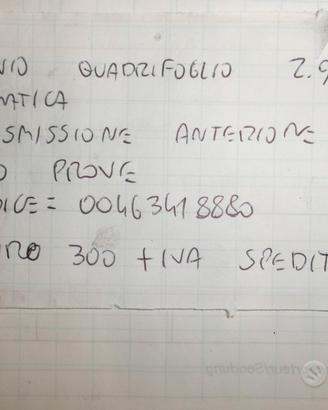 VIO QUADRIFOGLIO 2.9
MATICA
SMISSIONE ANTERIONE
O PROVE
DICE = 00463418880
URO 300 + IVA SPEDIT